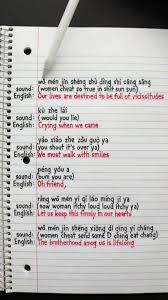 wǒ mén jīn shēng zhù dìng shì cāng sāng
sound: (women cheat so true in shit sun sun)
English: Our lives are destined to be full of vicissitudes
kū zhe lái
sound: (would you lie)
English: Crying when we came
yào xiào zhe zǒu guò ya
sound: (you shout it's over ya)
English: We must walk with smiles
péng yǒu a
sound: (bum you are)
English: Oh friend,
ràng wǒ mén yī qǐ láo míng jì
sound: (now woman itchy loud loud itchy ya)
English: Let us keep this firmly in our hearts
wǒ mén jīn shēng xiōng dì qíng yì cháng
sound: (women cheat send some D ching eat chang)
English: The brotherhood among us is lifelong